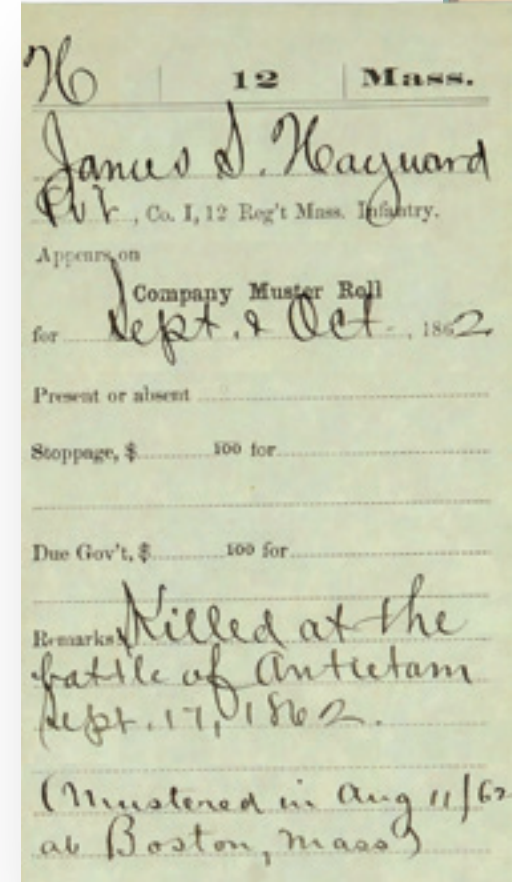 H 12 Mass.
James S. Hayward
Pvt, Co. I, 12 Reg't Mass. Infantry.
Appears on
Company Muster Roll
for Sept. & Oct., 1862
Present or absent
Stoppage, $ 100 for
Due Gov't, $ 100 for
Remarks: Killed at the
battle of Antietam
Sept. 17, 1862.
(Mustered in Aug 11/62
at Boston, Mass)